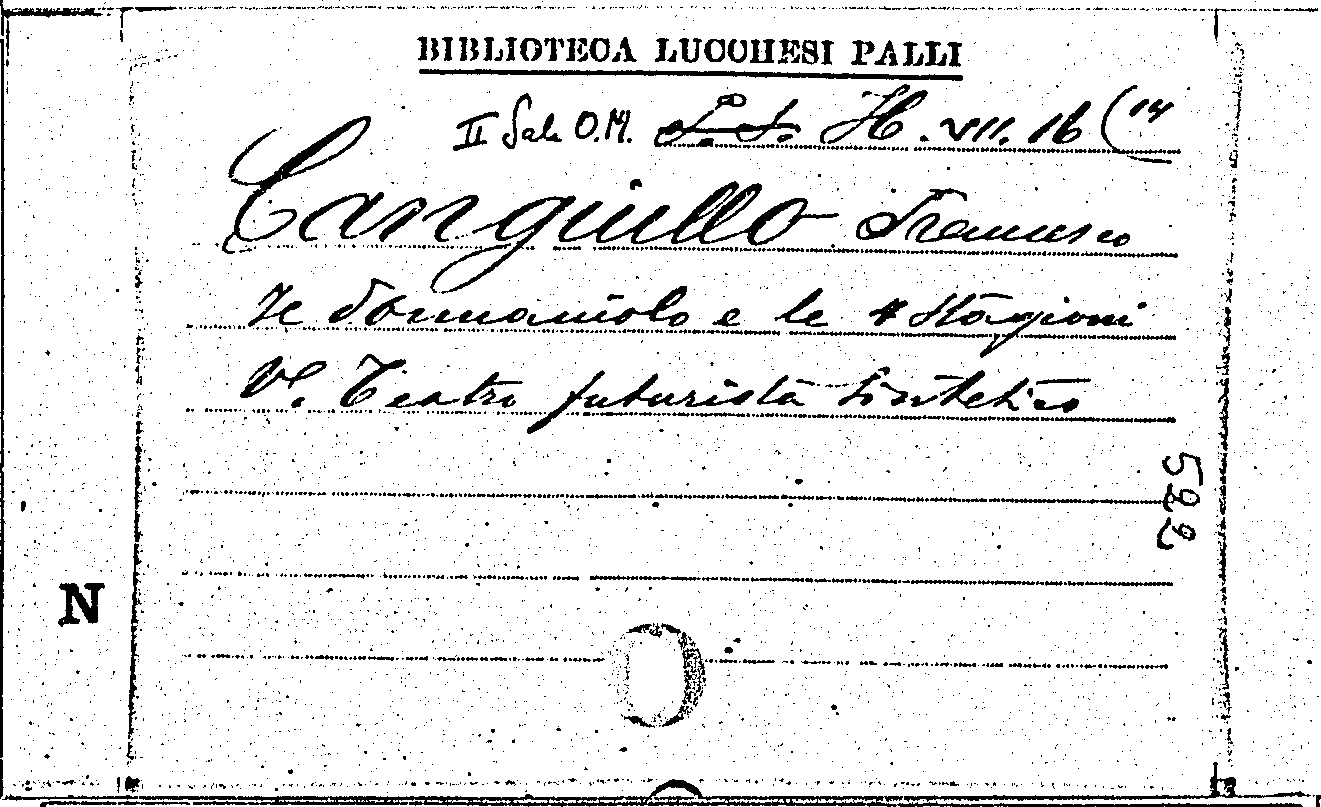 BIBLIOTECA LUCCHESI PALLI
II Sala O.M. L.P. H. VII. 16 (14
Cangiullo Francesco
Il donnaiolo e le 4 Stagioni
V. Teatro futurista sintetico
522
N